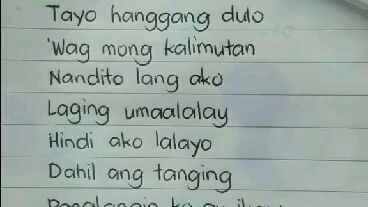 Tayo hanggang dulo
'Wag mong kalimutan
Nandito lang ako
Laging umaalalay
Hindi ako lalayo
Dahil ang tanging
Panalangin ko ay